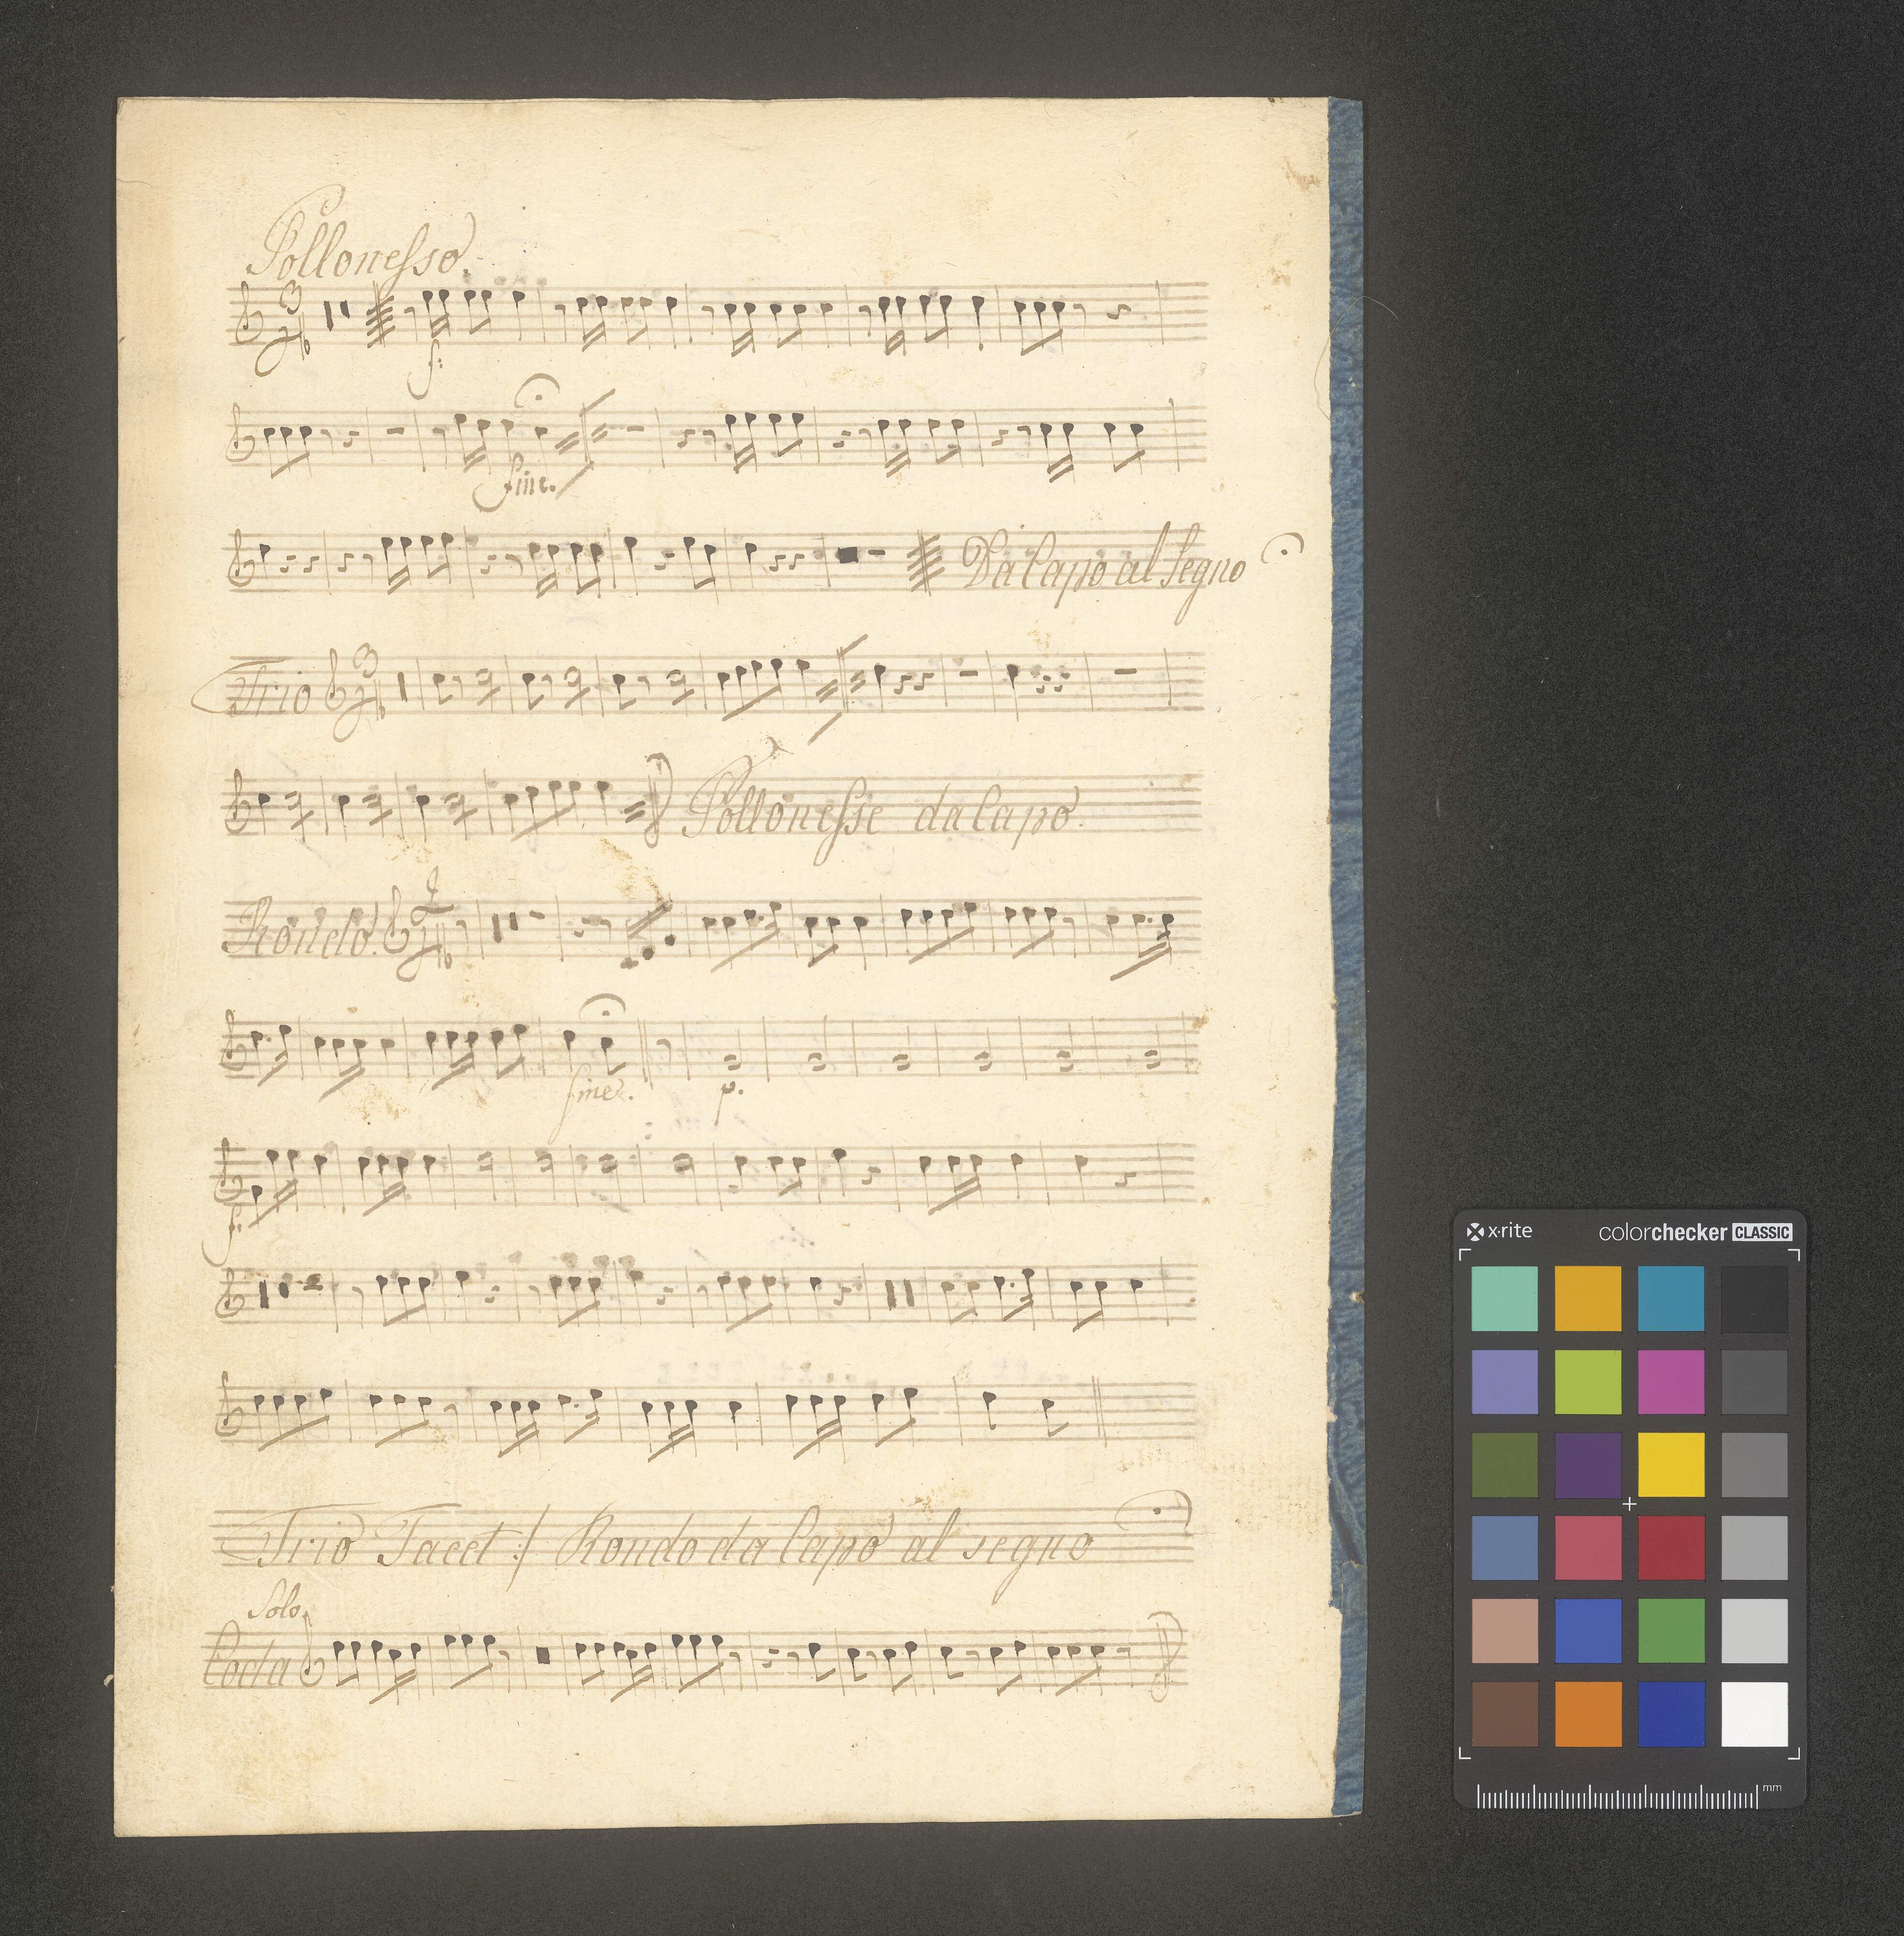 Pollonesso.
3
4
f:
fine.
Da Capo al Segno
Trio 3
4
Pollonesse da Capo.
Rondo. 2
4
fine.
p.
f:
Trio Tacet :/ Rondo da Capo al segno
Solo
Coda
x-rite colorchecker CLASSIC
mm